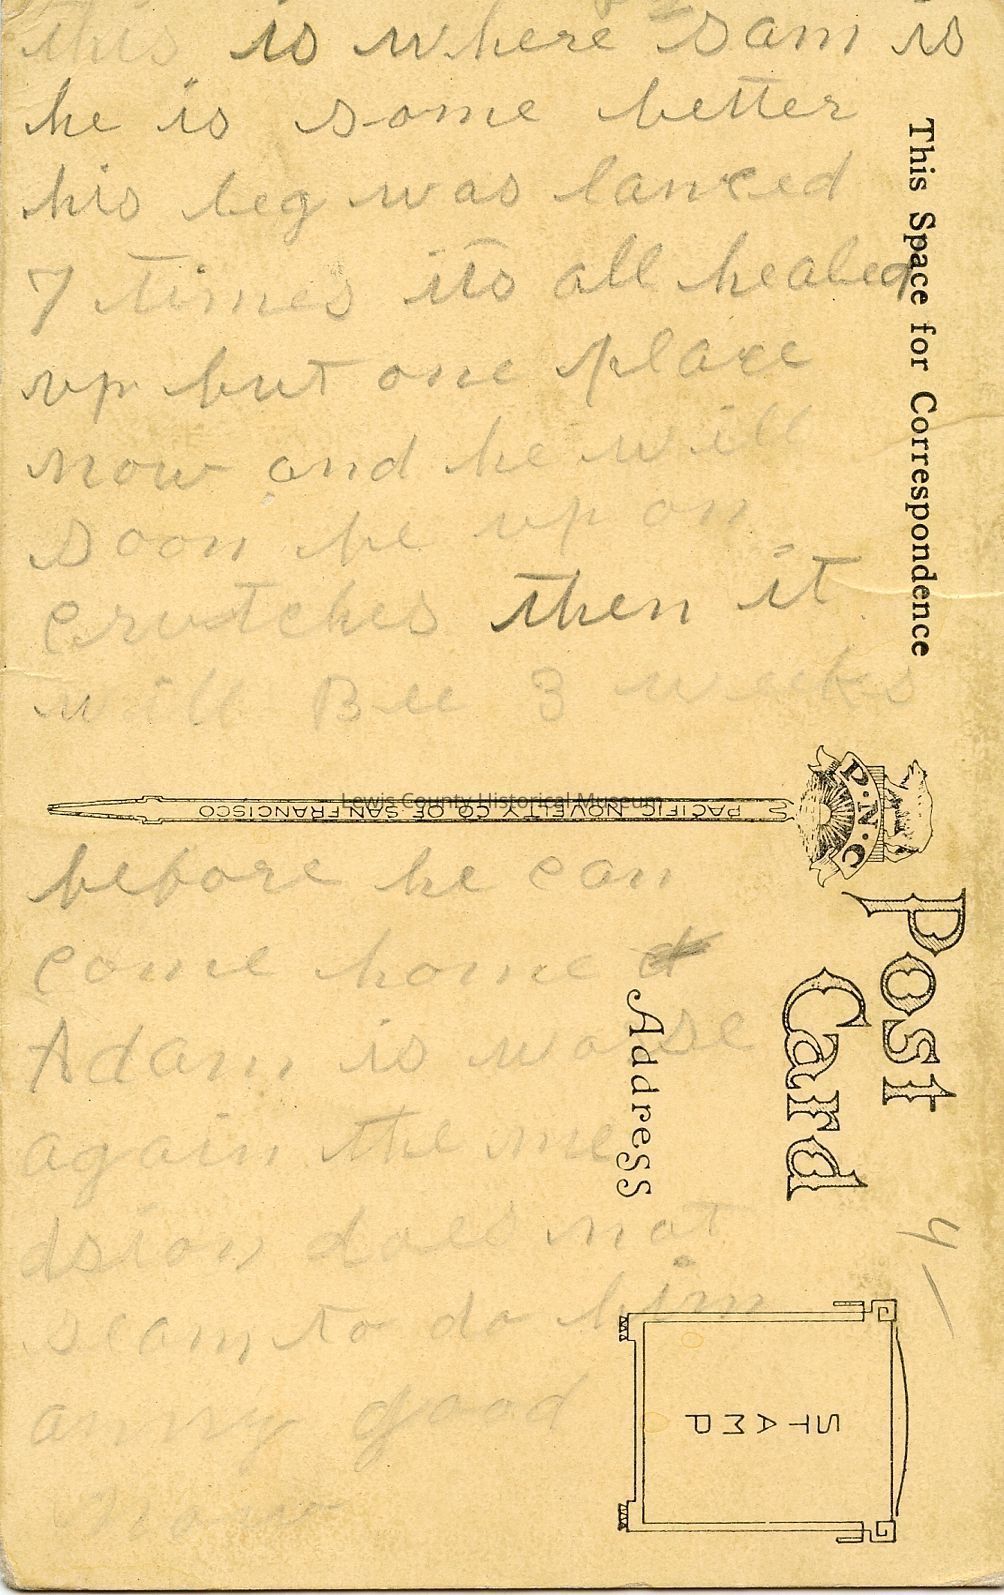 this is where Sam is
he is some better
his leg was lanced
7 times its all healed
up but one place
now and he will
soon be up on
crutches then it
will Bee 3 weeks
before he can
come home
Adam is worse
again the me
dsion does not
seam to do him
anny good
now
This Space for Correspondence
PACIFIC NOVELTY CO. OF SAN FRANCISCO
Lewis County Historical Museum
P.N.C
Post
Card
Address
4-
STAMP